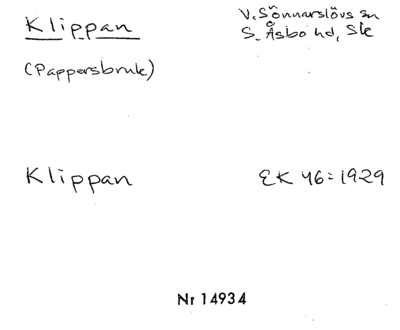 Klippan
V. Sönnarslövs sn
S. Åsbo hd, Sk
(Pappersbruk)
Klippan
EK 46:1929
Nr 14934